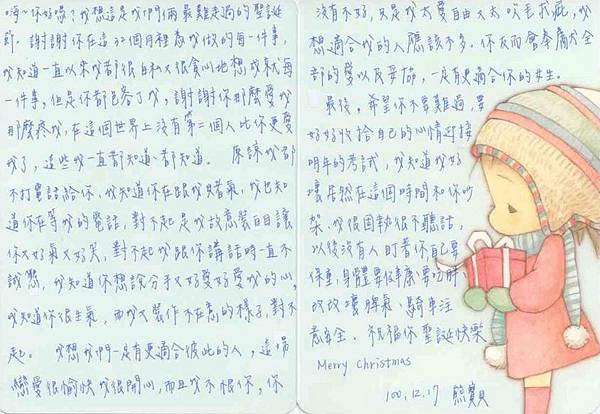 嗨~你好嗎?我想這是我們倆最難走過的聖誕
節。謝謝你在這32個月裡為我做的每一件事,
我知道一直以來我都很自私又很貪心地想成就每
一件事,但是你都包容了我,謝謝你那麼愛我
那麼疼我,在這個世界上沒有第二個人比你更愛
我了,這些我一直都知道、都知道。 原諒我都
不打電話給你,我知道你在跟我賭氣,我也知
道你在等我的電話,對不起是我故意裝白目讓
你又好氣又好笑,對不起我跟你講話時一直不
誠懇,我知道你想說分手又好愛好愛我的心,
我知道你很生氣,而我又製作不在意的樣子,對不
起。 我想我們一定有更適合彼此的人,這場
戀愛很愉快我很開心,而且我不恨你,你
沒有不好,只是我太愛自由又太吹毛求疵,我
想適合我的人應該不多。你反而會奉獻大全
部的愛以及妥協,一定有更適合你的女生。
最後,希望你不要難過,要
好好收拾自己的心情迎接
明年的考試,我知道我好
壞居然在這個時間和你吵
架。我很固執很不聽話,
以後沒有人盯著你自己要
保重,身體要健康要吃胖、
改改壞脾氣、騎車注
意安全。祝福你聖誕快樂
Merry Christmas
100.12.17 熊寶貝